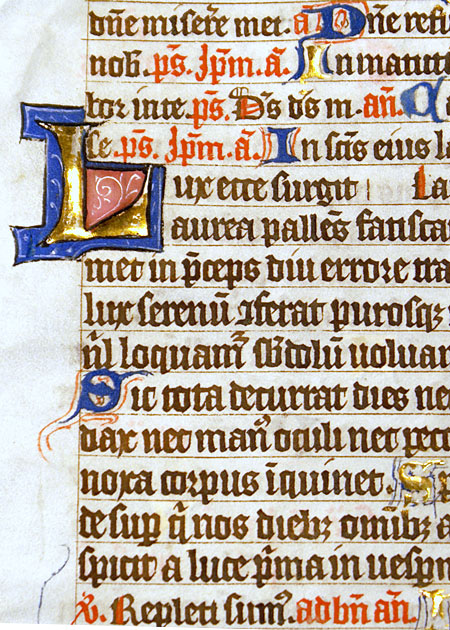 dñe miserẽ mei. a᷑ Dñe refu
nob. ps̃. Ip̃m. a᷑. In matuti
bor in te. ps̃. D̃s d̃s m. añ.
se. ps̃. Ip̃m. a᷑. In sc̃is eius la
Lux ecce surgit
aurea pallẽs fatisca
met in p̃ceps diu errore tra
lux serenũ ꝯferat purosqꝫ
nĩl loquam᷑ sb̃dolũ uoluam
Sic tota decurrat dies ne
dax nec man᷒ oculi nec pecc
noxa corpus ĩquinet. Sp
desup̃ q̃ nos diebꝫ om̃ibꝫ a
spicit a luce p̃ma in uesp̃m
v̷. Repleti sum᷒. ad bñ añ.